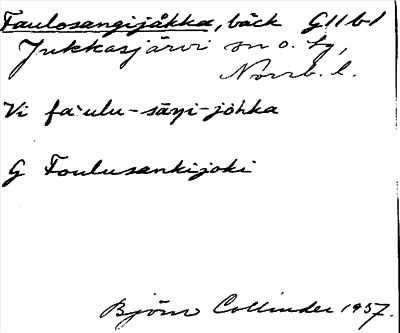 Faulosangijåkka, bäck G11b1
Jukkasjärvi sn o. tg,
Norrb. l.
Vi fa·ulu-sāŋi-jòhka
G Foulusankijoki
Björn Collinder 1957.